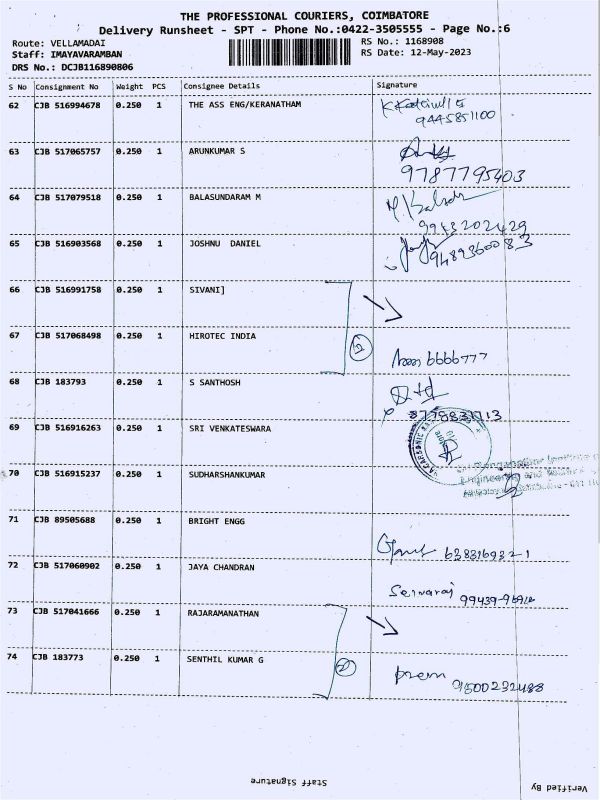 THE PROFESSIONAL COURIERS, COIMBATORE
Delivery Runsheet - SPT - Phone No.:0422-3505555 - Page No.:6
Route: VELLAMADAI
RS No.: 1168908
Staff: IMAYAVARAMBAN
RS Date: 12-May-2023
DRS No.: DCJB116890806
S No Consignment No Weight PCS Consignee Details Signature
62 CJB 516994678 0.250 1 THE ASS ENG/KERANATHAM
9445851100
63 CJB 517065757 0.250 1 ARUNKUMAR S
9787795403
64 CJB 517079518 0.250 1 BALASUNDARAM M
9943202429
65 CJB 516903568 0.250 1 JOSHNU DANIEL
9489360083
66 CJB 516991758 0.250 1 SIVANI]
67 CJB 517068498 0.250 1 HIROTEC INDIA
2
6666777
68 CJB 183793 0.250 1 S SANTHOSH
8778831713
69 CJB 516916263 0.250 1 SRI VENKATESWARA
70 CJB 516915237 0.250 1 SUDHARSHANKUMAR
Engineering and
71 CJB 89505688 0.250 1 BRIGHT ENGG
6383169321
72 CJB 517060902 0.250 1 JAYA CHANDRAN
Selvaraj
73 CJB 517041666 0.250 1 RAJARAMANATHAN
74 CJB 183773 0.250 1 SENTHIL KUMAR G
2
Prem 9500232488
Staff Signature
Verified By